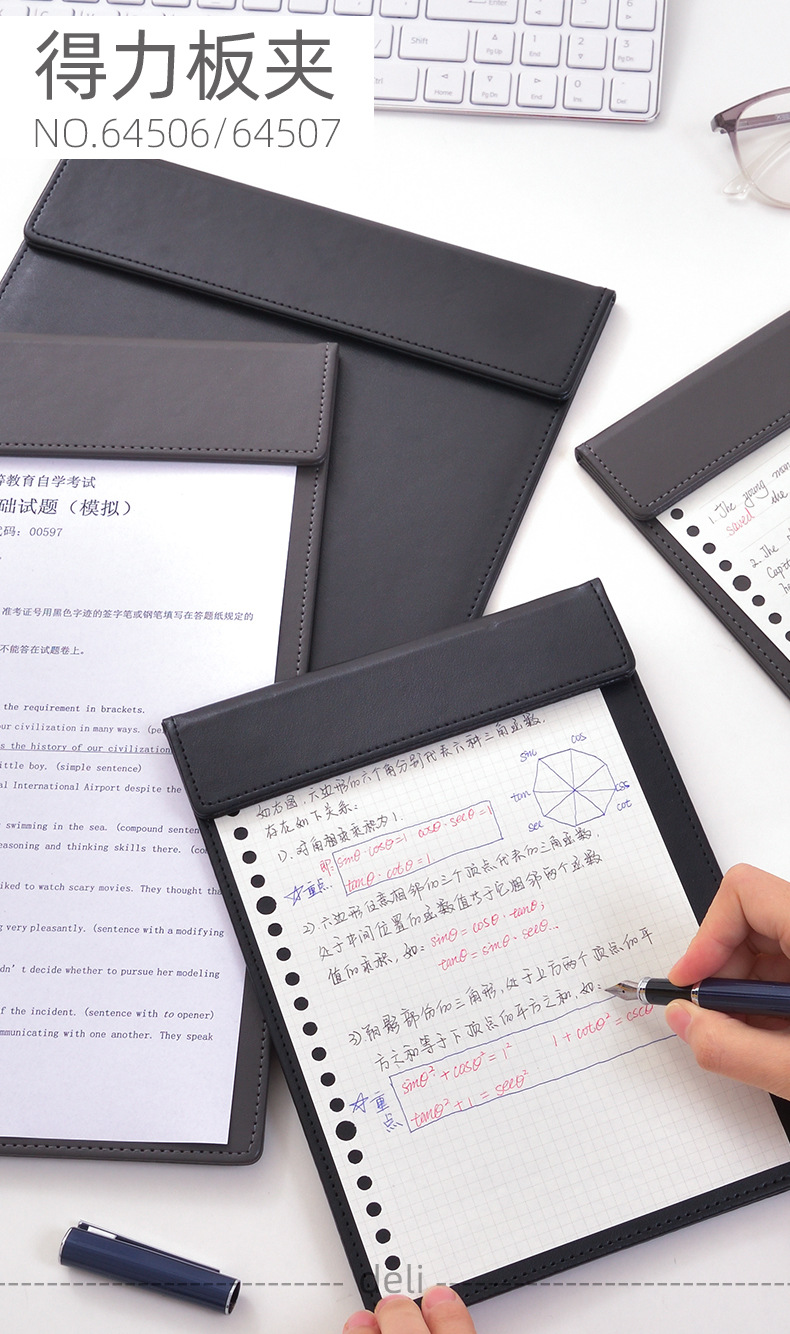 得力板夹
NO.64506/64507
Shift
Enter
PgUp
End
PgDn
Ctrl
Home
PgDn
End
Ins
Del
等教育自学考试
础试题（模拟）
代码：00597
准考证号用黑色字迹的签字笔或钢笔填写在答题纸规定的
不能答在试题卷上。
the requirement in brackets.
our civilization in many ways.
s the history of our civilization
ittle boy. (simple sentence)
al International Airport despite the
swimming in the sea. (compound senten
easoning and thinking skills there. (co
iked to watch scary movies. They thought tha
g very pleasantly. (sentence with a modifying
dn't decide whether to pursue her modeling
f the incident. (sentence with to opener)
mmunicating with one another. They speak
1. The young man
saved the
2. The
如右图，六边形的六个角分别代表六种三角函数，
存在如下关系：
1). 对角相乘乘积为1.
即: sinθ·cscθ=1 cosθ·secθ=1
☆重点. tanθ·cotθ=1
sin
cos
tan
csc
sec
cot
2). 六边形任意相邻的三个顶点代表的三角函数，
处于中间位置的函数值等于它相邻两个函数
值的乘积，如：sinθ=cosθ·tanθ；
tanθ=sinθ·secθ...
3) 阴影部份的三角形，处于上方两个顶点的平
方之和等于下顶点的平方之和，如：
sinθ²+cosθ²=1² 1+cotθ²=cscθ
☆重点 tanθ²+1=secθ²
deli